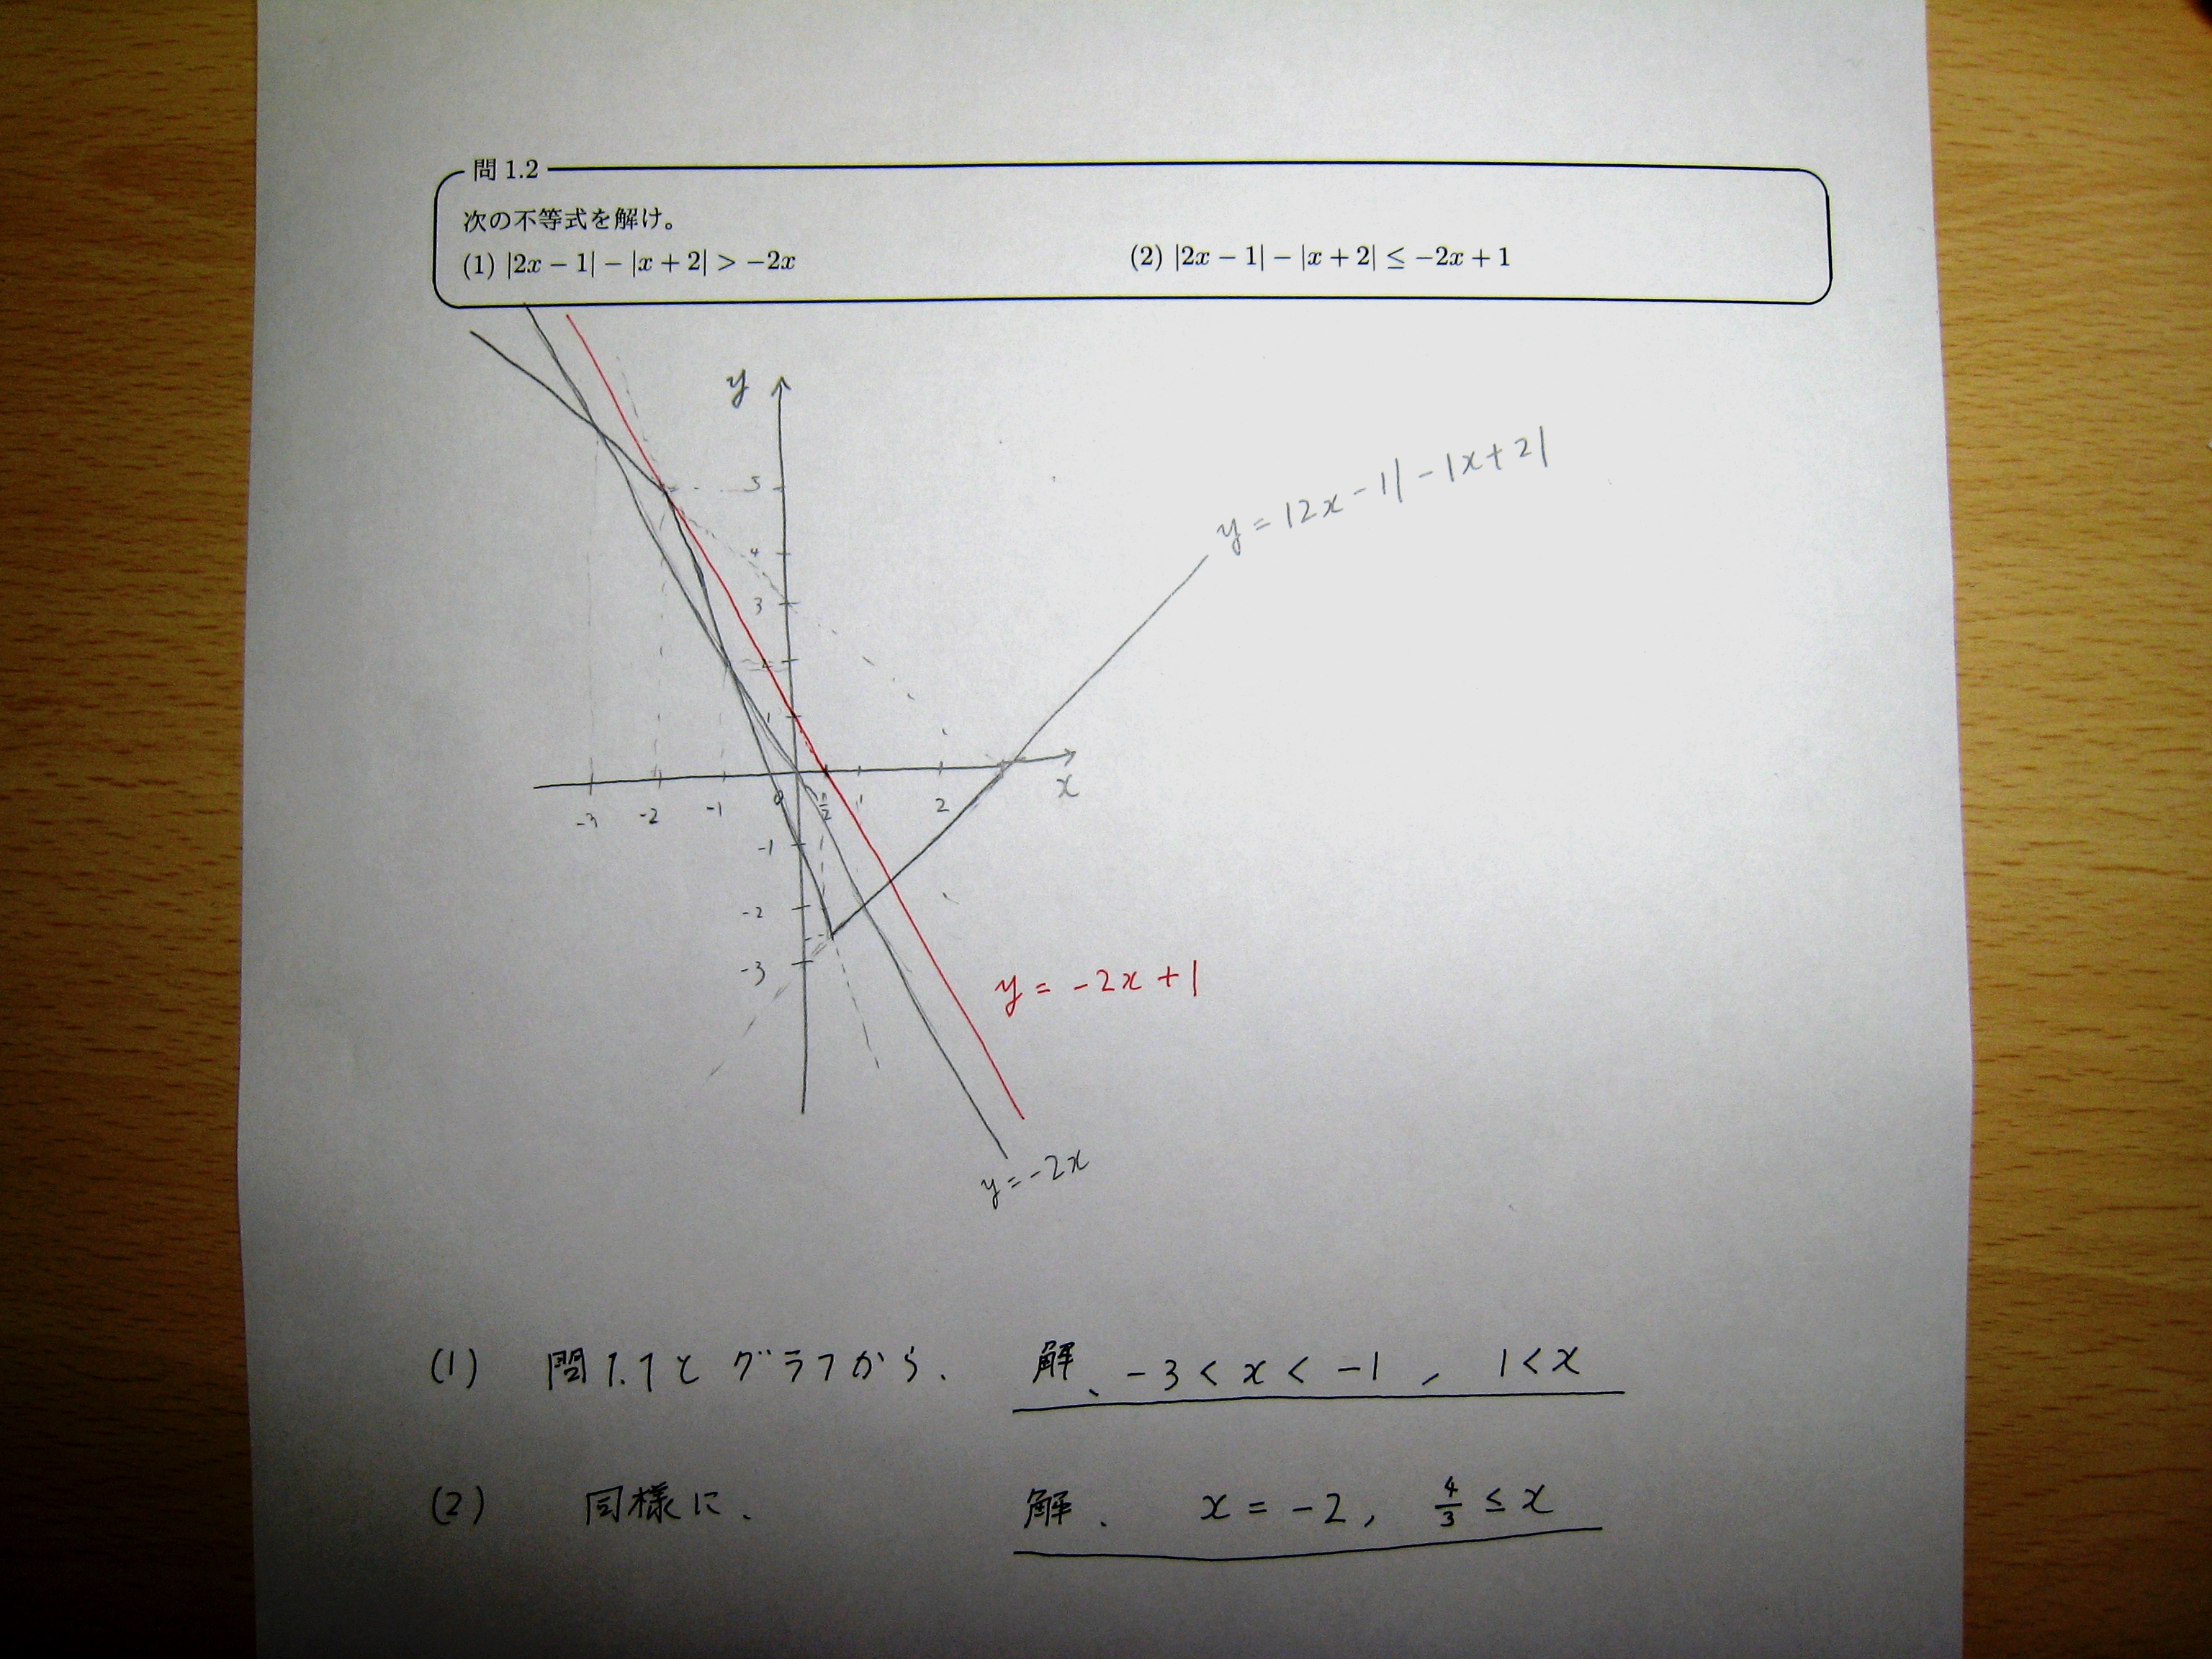 問 1.2
次の不等式を解け。
(1) |2x − 1| − |x + 2| > −2x
(2) |2x − 1| − |x + 2| ≤ −2x + 1
y
y = |2x − 1| − |x + 2|
5
4
3
2
1
x
-3 -2 -1 0 1/2 1 2
-1
-2
-3
y = −2x + 1
y = −2x
(1) 問1.1とグラフから、 解、 −3 < x < −1 , 1 < x
(2) 同様に、 解. x = −2, 4/3 ≤ x